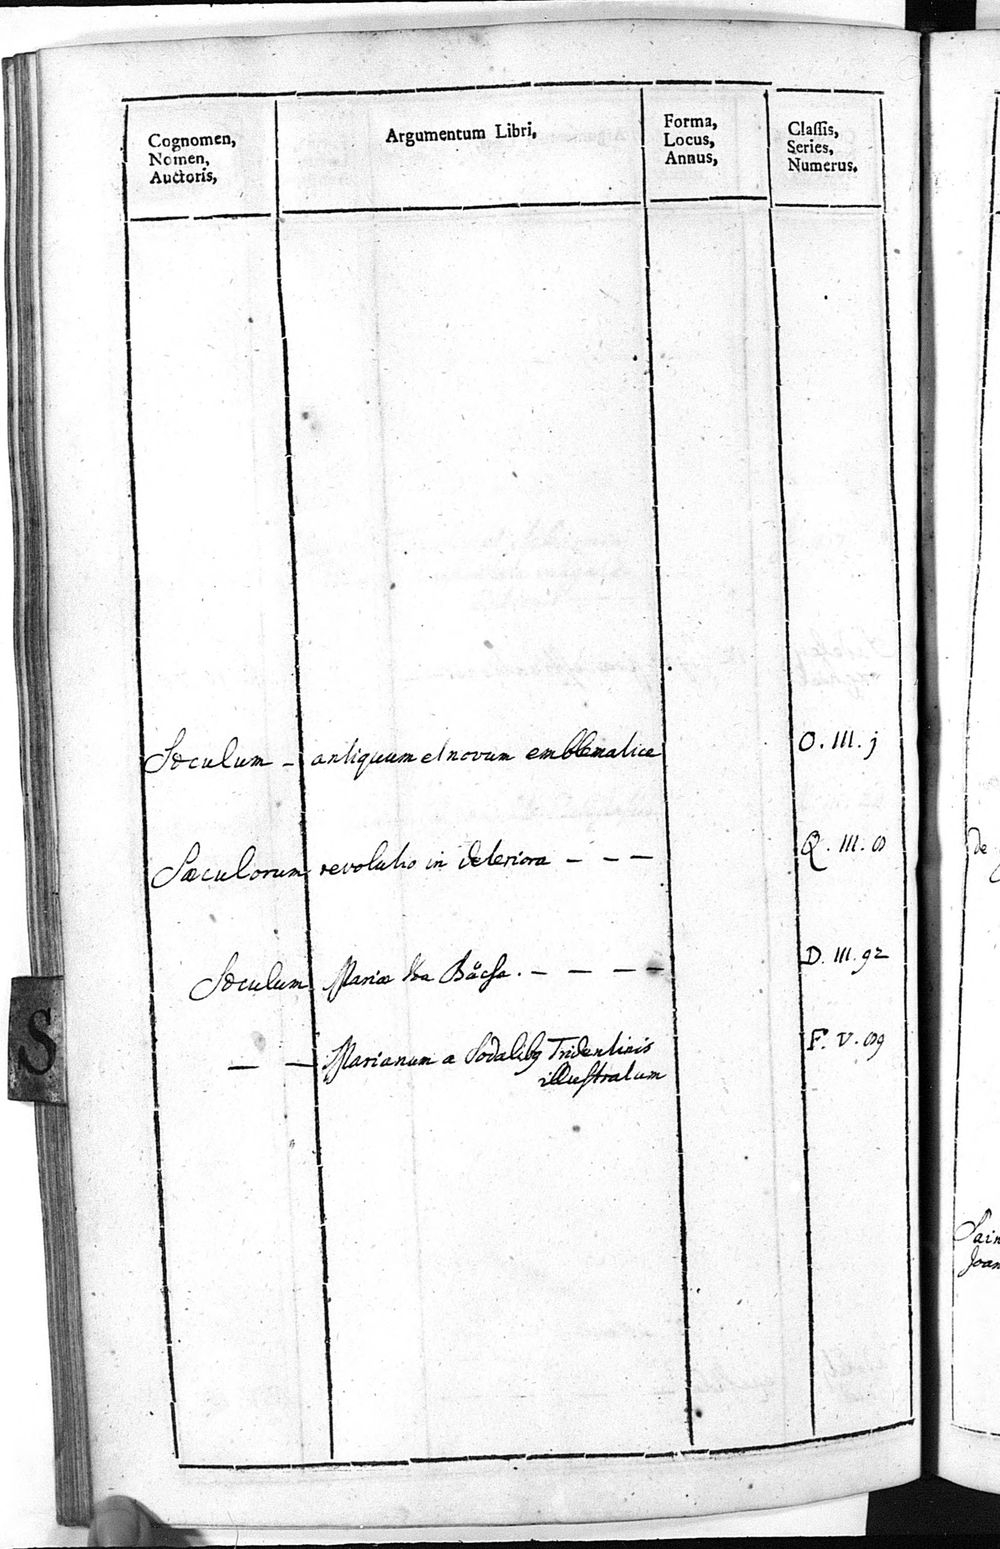 Cognomen,
Nomen,
Auctoris,
Argumentum Libri,
Forma,
Locus,
Annus,
Classis,
Series,
Numerus.
Sæculum - antiquum et novum emblematice O. III. j
Sæculorum revolutio in deteriora - - - Q. III.
Sæculum Mariæ D. III. 92
- - Marianum a Sodalibq Tridentinis F. V.
illustratum
S
de
Sain
Joan